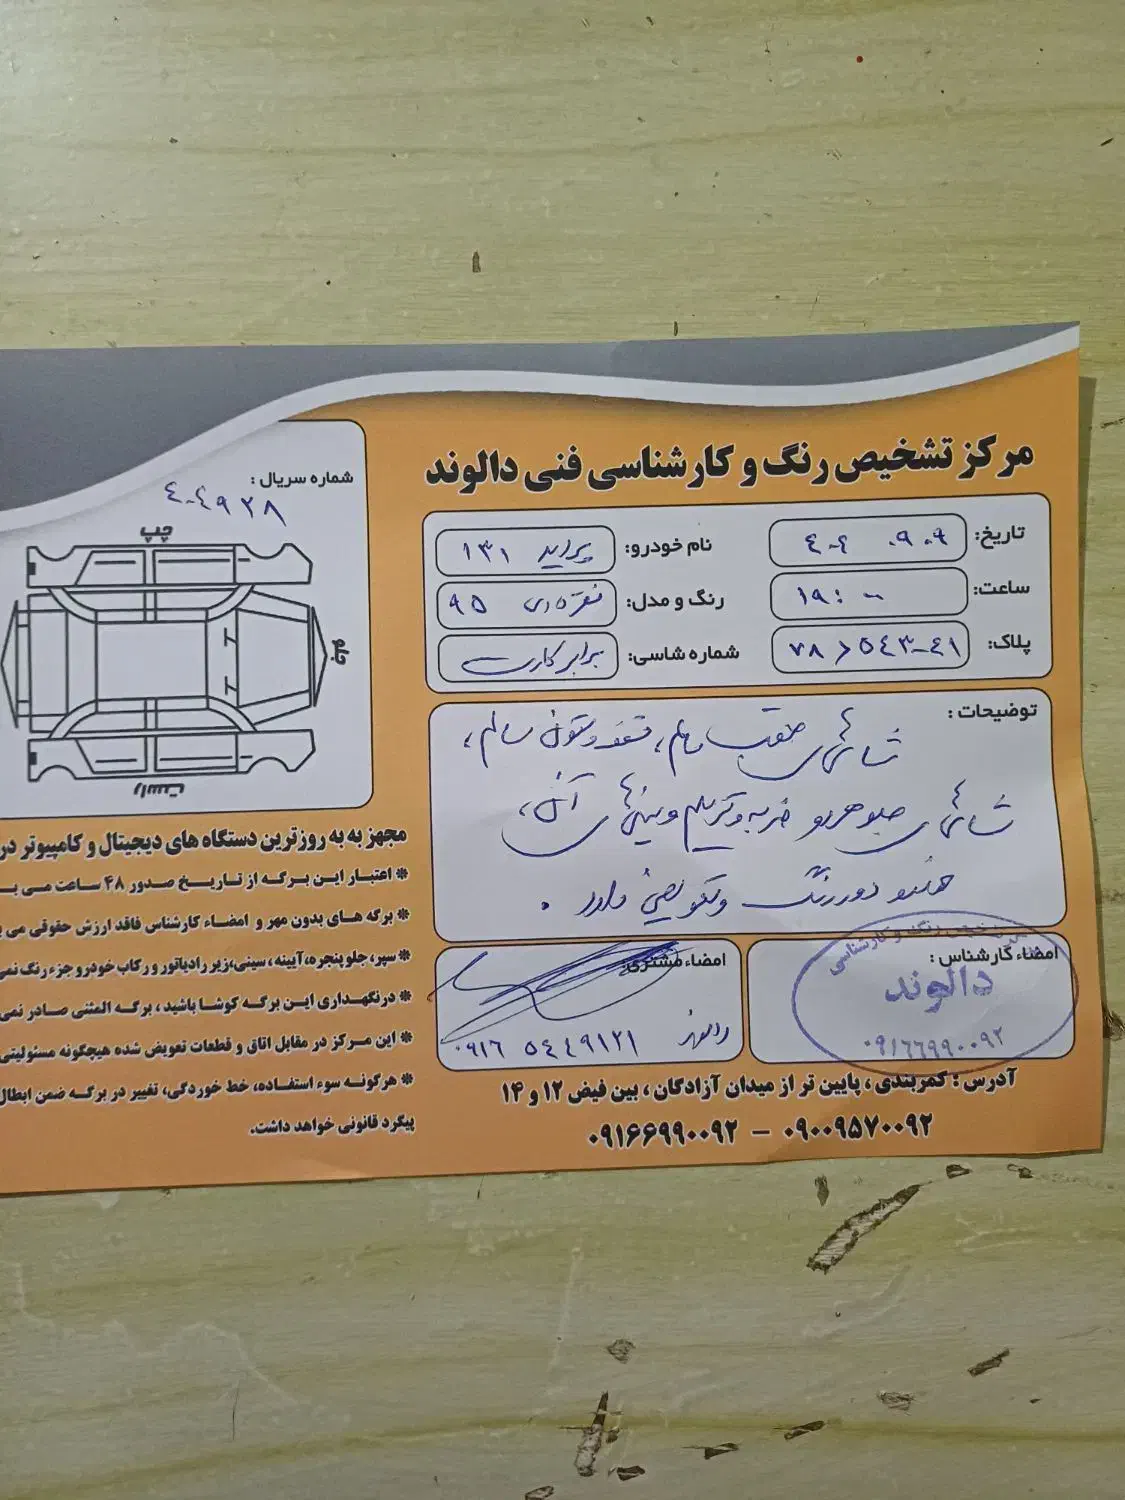 مرکز تشخیص رنگ و کارشناسی فنی دالوند
تاریخ: ۴۰۴ ۰۹ ۰۹
نام خودرو: پراید ۱۳۱
ساعت: ۱۹:۰۰
رنگ و مدل: نقره ای ۹۵
پلاک:
شماره شاسی: برابر کارت
توضیحات:
شاسی های عقب سالم، سقف و ستون سالم،
شاسی های جلو هر دو ضربه و ترمیم و سینی های آن،
دور رنگ و تعویضی دارد.
امضاء کارشناس:
دالوند
۰۹۱۶۶۹۹۰۰۹۲
امضاء مشتری:
۰۹۱۶ ۵۴۴۹۱۲۱
آدرس: کمربندی، پایین تر از میدان آزادگان، بین فیض ۱۲ و ۱۴
۰۹۰۰۹۵۷۰۰۹۲ – ۰۹۱۶۶۹۹۰۰۹۲
شماره سریال:
۴۰۴۹۲۸
چپ
جلو
راست
مجهز به به روزترین دستگاه های دیجیتال و کامپیوتر در
* اعتبار این برگه از تاریخ صدور ۴۸ ساعت می ب
* برگه های بدون مهر و امضاء کارشناس فاقد ارزش حقوقی می
* سپر، جلوپنجره، آیینه، سینی، زیر رادیاتور و رکاب خودرو جزء رنگ نمی
* درنگهداری این برگه کوشا باشید، برگه المثنی صادر نمی
* این مرکز در مقابل اتاق و قطعات تعویض شده هیچگونه مسئولیتی
* هرگونه سوء استفاده، خط خوردگی، تغییر در برگه ضمن ابطال
پیگرد قانونی خواهد داشت.